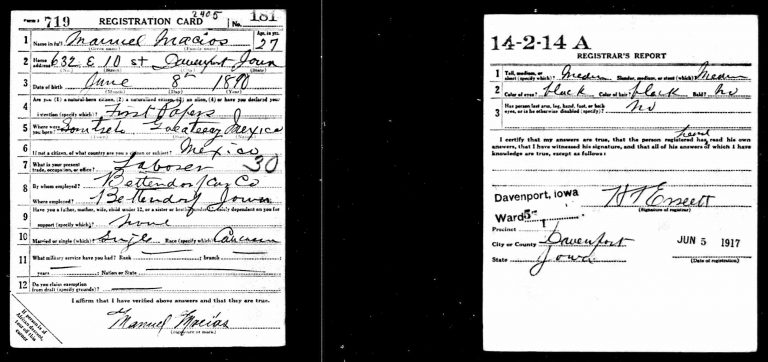 Form 1 719 REGISTRATION CARD 2405 No. 181
1 Name in full Manuel Macias Age, in yrs. 27
(Given name) (Family name)
2 Home address 632 E 10 st Davenport Iowa
(No.) (Street) (City) (State)
3 Date of birth June 8
(Month) (Day) (Year)
4 Are you (1) a natural-born citizen, (2) a naturalized citizen, (3) an alien, (4) or have you declared your
intention (specify which)? First Papers
5 Where were you born? Mexico
6 If not a citizen, of what country are you a citizen or subject? Mexico
7 What is your present trade, occupation, or office? Laborer 30
8 By whom employed? Bettendorf Car Co
Where employed? Bettendorf Iowa
9 Have you a father, mother, wife, child under 12, or a sister or brother under 12, solely dependent on you for
support (specify which)? None
10 Married or single (which)? Single Race (specify which)? Caucasian
11 What military service have you had? Rank ; branch
years ; Nation or State
12 Do you claim exemption from draft (specify grounds)?
I affirm that I have verified above answers and that they are true.
Manuel Macias
(Signature or mark)
If person is of African descent, tear off this corner
14-2-14 A
REGISTRAR'S REPORT
1 Tall, medium, or short (specify which)? Medium Slender, medium, or stout (which)? Medium
2 Color of eyes? black Color of hair? black Bald? No
3 Has person lost arm, leg, hand, foot, or both eyes, or is he otherwise disabled (specify)? No
I certify that my answers are true, that the person registered has read his own
answers, that I have witnessed his signature, and that all of his answers of which I have
knowledge are true, except as follows:
(Signature of registrar)
Davenport, Iowa
Ward 5-
Precinct 1
City or County Davenport JUN 5 1917
State Iowa (Date of registration)